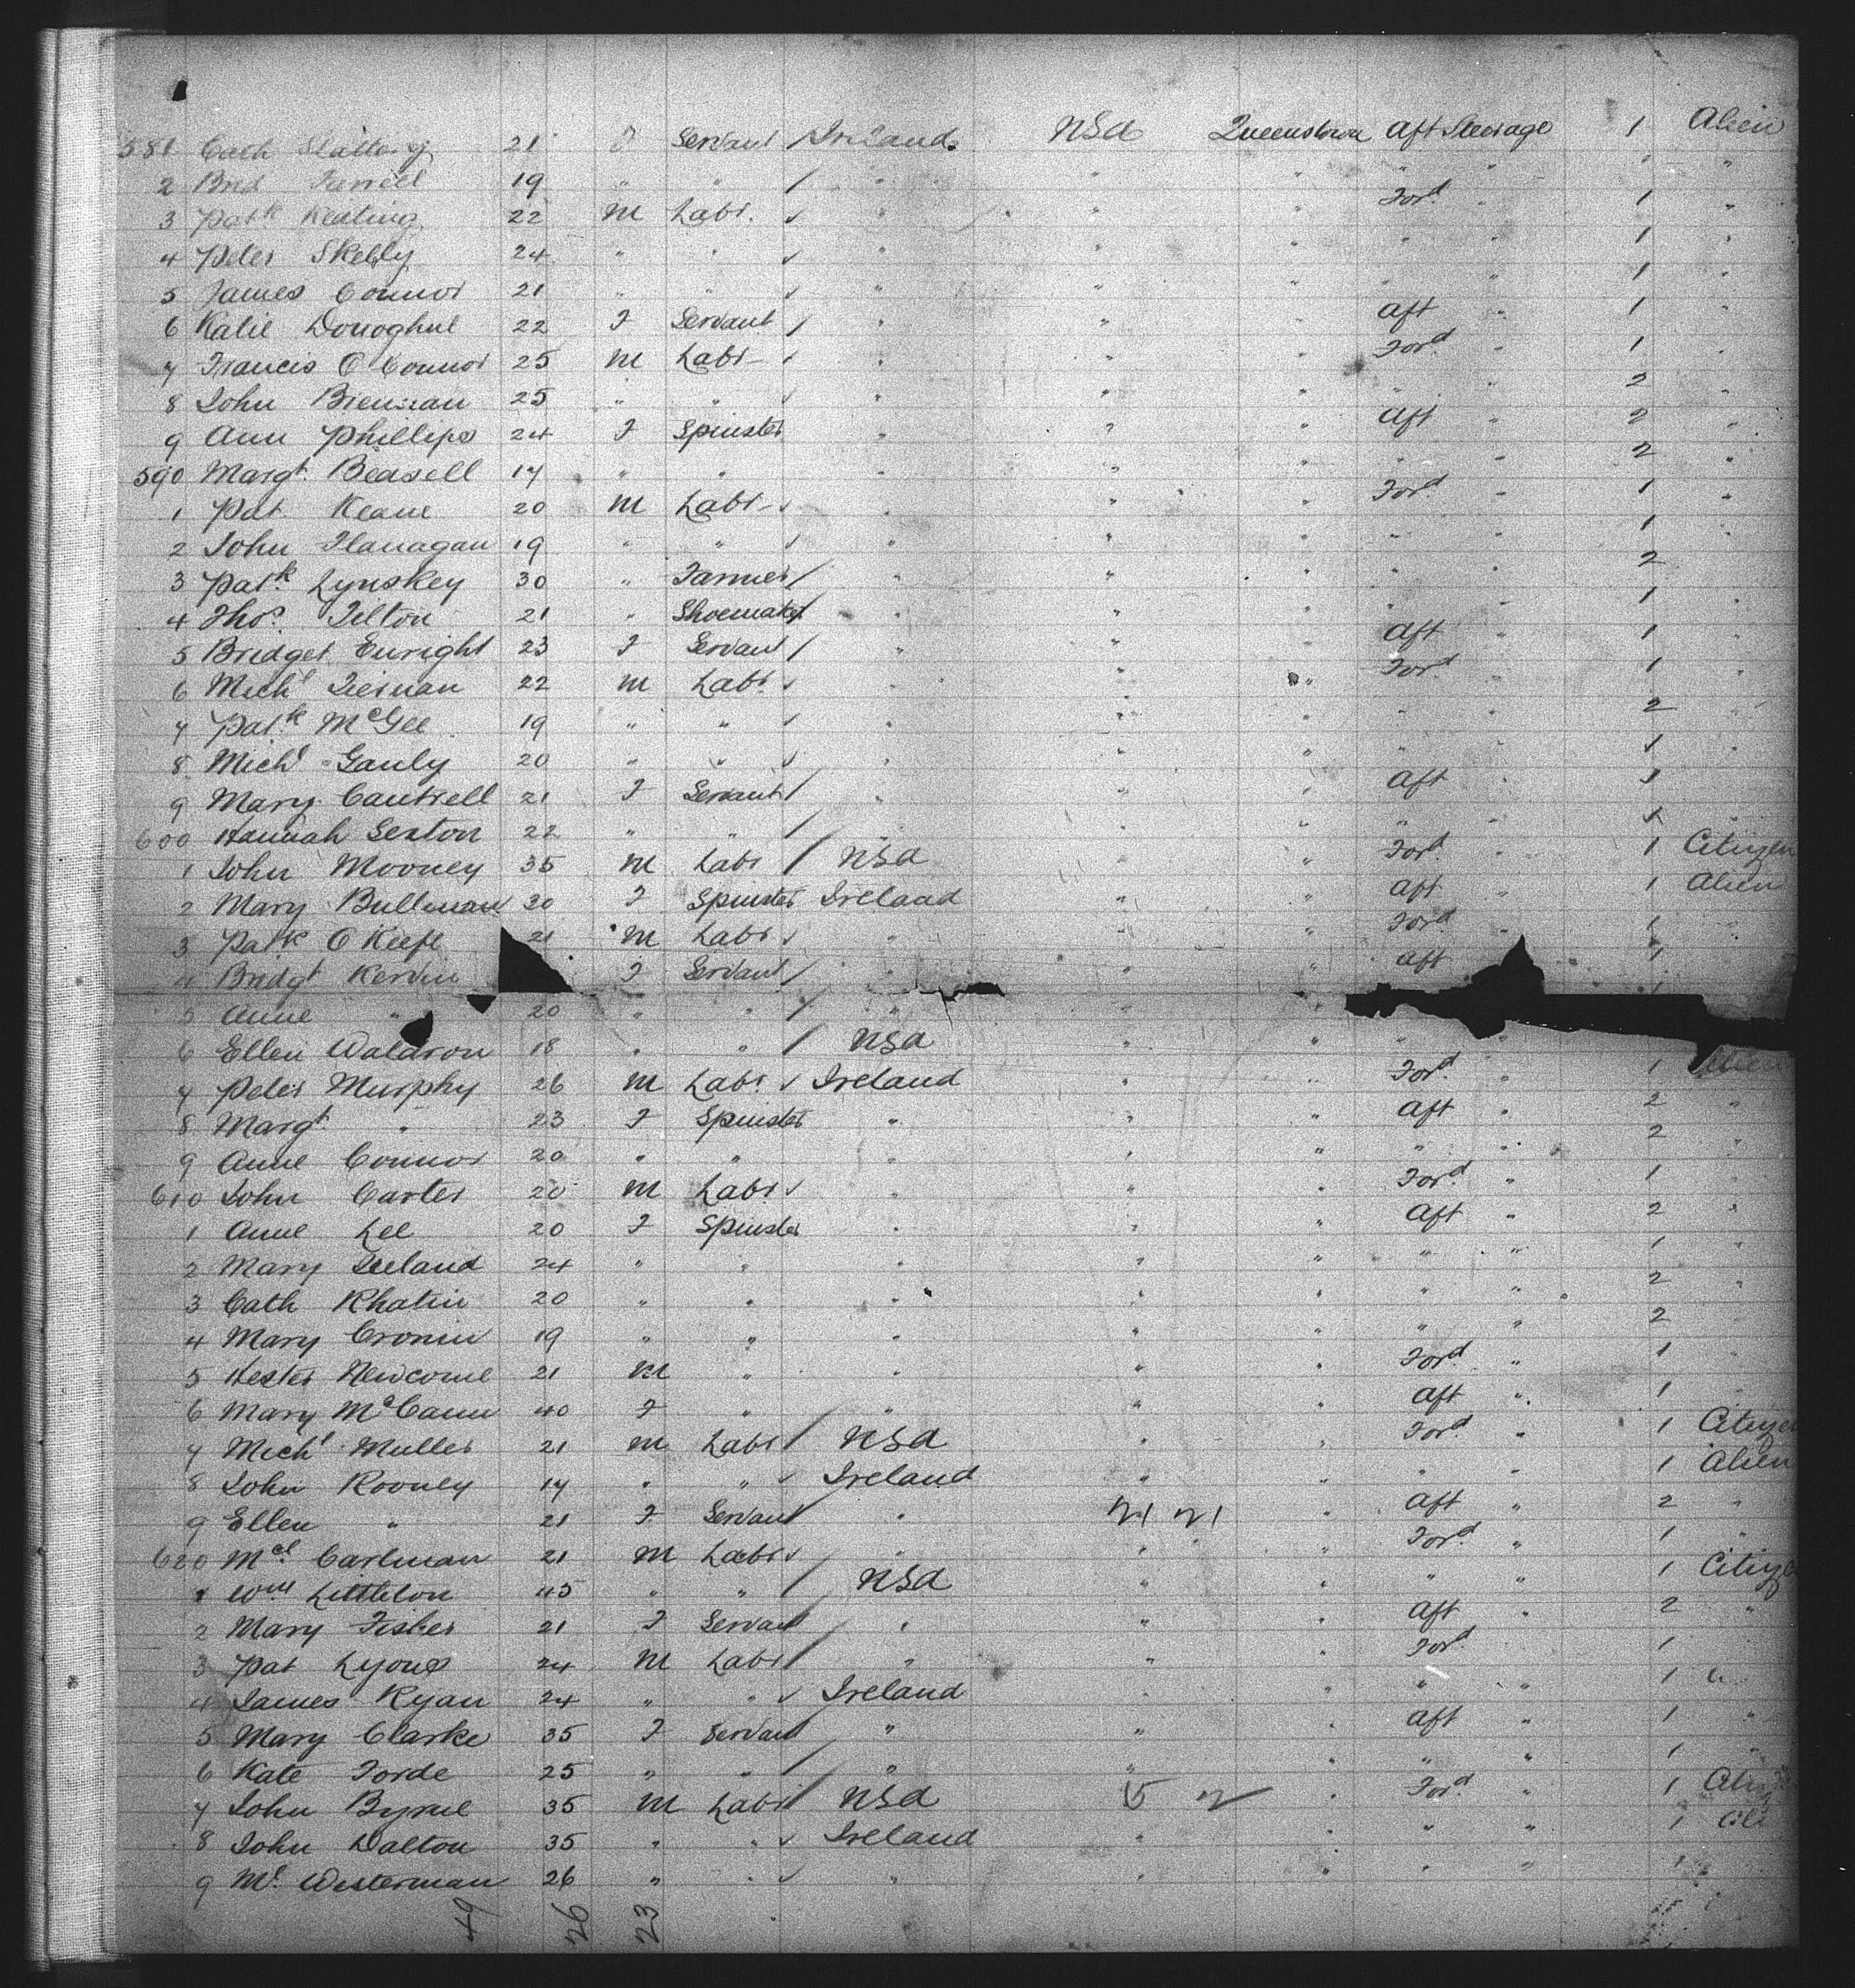 581 Cath Slattery 21 F Servant / Ireland. USA Queenstown Aft Steerage 1 Alien
2 Brid Farrell 19 " " / " " " " " " "
3 Patk Keating 22 M Labr. ✓ " " " Ford " 1 "
4 Peter Skelly 24 " " ✓ " " " " " 1 "
5 James Connor 21 " " ✓ " " " " " 1 "
6 Katie Donoghue 22 F Servant / " " " Aft " 1 "
7 Francis O'Connor 25 M Labr ✓ " " " Ford " 1 "
8 John Brennan 25 " " ✓ " " " " " 2 "
9 Ann Phillips 24 F Spinster " " " Aft " 2 "
590 Margt. 17 " " " " " " " 2 "
1 Pat Keane 20 M Labr ✓ " " " Ford " 1 "
2 John Flanagan 19 " " ✓ " " " " " 1 "
3 Patk Lynskey 30 " Farmer / " " " " " 2 "
4 Thos. Tilton 21 " Shoemaker / " " " " " 1 "
5 Bridget Enright 23 F Servant / " " " Aft " 1 "
6 Michl Tiernan 22 M Labr. ✓ " " " Ford " 1 "
7 Patk McGee 19 " " ✓ " " " " " 2 "
8 Michl Gauly 20 " " ✓ " " " " " 1 "
9 Mary Cantrell 21 F Servant / " " " Aft " 1 "
600 Hannah Sexton 22 " " / " " " " " 1
1 John Mooney 35 M Labr / USA " " Ford " 1 Citizen
2 Mary Bullman 30 F Spinster Ireland " " Aft " 1 Alien
3 Patk O'Keefe 21 M Labr ✓ " " " Ford 1
4 Bridgt Kerwin F Servant / " " " Aft 1
5 Anne " 20 " " / " 1
6 Ellen Waldron 18 " " / USA " " "
7 Peter Murphy 26 M Labr ✓ Ireland " " Ford " 1 Alien
8 Margt " 23 F Spinster " " " Aft " 2 "
9 Anne Connor 20 " " " " " " " 2 "
610 John Carter 20 M Labr ✓ " " " Ford " 1 "
1 Anne Lee 20 F Spinster " " " Aft " 2 "
2 Mary 24 " " " " " " " 1 "
3 Cath 20 " " " " " " " 2 "
4 Mary Cronin 19 " " " " " " " 2 "
5 Hester Newcome 21 M " " " " Ford " 1 "
6 Mary McCann 40 F " " " " Aft " 1 "
7 Michl Muller 21 M Labr / USA " " Ford " 1 Citizen
8 John Rooney 17 " " ✓ Ireland " " " " 1 Alien
9 Ellen " 21 F Servant / " 21 21 " Aft " 2 "
620 Mcl Carlman 21 M Labr ✓ " " " Ford " 1 "
1 Wm Littleton 45 " " / USA " " " " 1 Citize
2 Mary Fisher 21 F Servant / " " " Aft " 2 "
3 Pat Lyons 24 M Labr / " " " Ford 1 "
4 James Ryan 24 " " ✓ Ireland " " " " 1
5 Mary Clarke 35 F Servant / " " " Aft " 1 "
6 Kate Forde 25 " " / " " " " " 1 "
7 John Byrne 35 M Labr / USA " Ford " 1
8 John Dalton 35 " " ✓ Ireland " " " " 1 Ali
9 Westerman 26 " " ✓ " " " " " 1
49 26 23